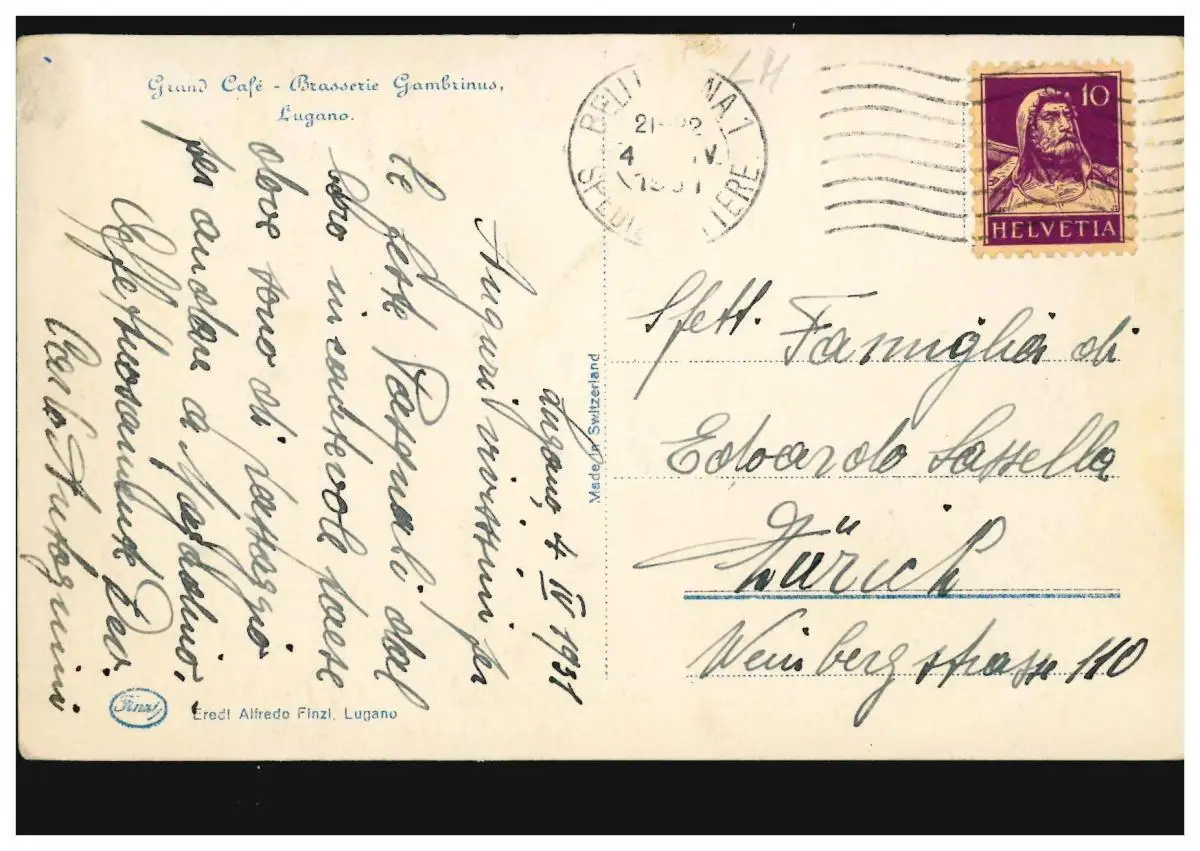 Grand Café - Brasserie Gambrinus,
Lugano.
Lugano, 4 IV 1931
Auguri vivissimi per
le feste Pasquali! dal
loro incantevole paese
dove sono di passaggio
per andare a Magadino,
Affettuosamente
Carlo
Eredi Alfredo Finzi, Lugano
Finzi
Made in Switzerland
BELLI NA 1
21-22
4 IV
1931
SPEDIZ LETTERE
LH
10
HELVETIA
Spett. Famiglia di
Edoardo Sassella
Zürich
Weinbergstrasse 110